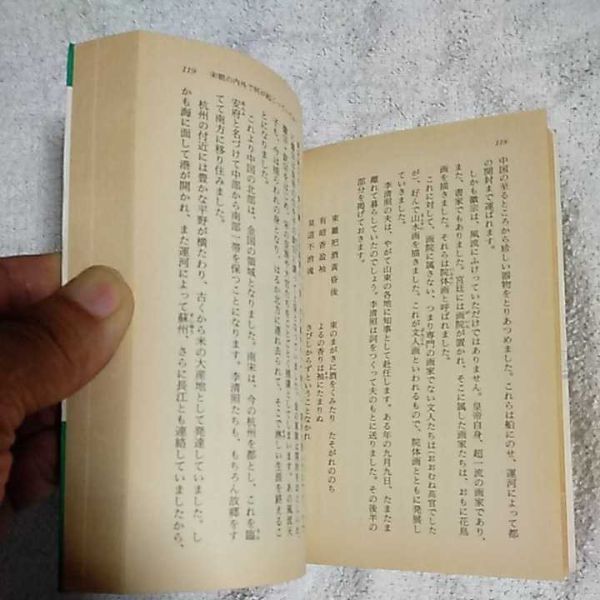 118
中国の至るところから珍しい器物をとりあつめました。これらは船にのせ、運河によって都
の開封まで運ばれます。
しかも徽宗は、風流にふけっていただけではありません。皇帝自身、超一流の画家であり、
また、書家でもありました。宮廷には画院が置かれ、そこに属した画家たちは、おもに花鳥
画を描きました。それらは院体画と呼ばれました。
これに対して、画院に属さない、つまり専門の画家でない文人たち（おおむね高官でした
が）、好んで山水画を描きました。これが文人画というもので、院体画とともに発展し
ていきました。
李清照の夫は、やがて山東の各地に知事として赴任します。ある年の九月九日、たまたま
離れて暮らしていたのでしょう。李清照は詞をつくって夫のもとに送りました。その後半の
部分を掲げておきます。
東籬把酒黄昏後 東のまがきに酒をくみたり たそがれののち
有暗香盈袖 よるの香りは袖にたまりぬ
莫道不消魂 さびしからずということなかれ
119
とになりました。
これより中国の北部は、金国の領域となります。南宋は、今の杭州を都とし、これを臨
安府と名づけて中部から南部一帯を保つことになります。李清照たちも、もちろん故郷をす
てて南方に移り住みました。
杭州の付近には豊かな平野が横たわり、古くから米の大産地として発達していました。し
かも海に面して港が開かれ、また運河によって蘇州、さらに長江とも連絡していましたから、